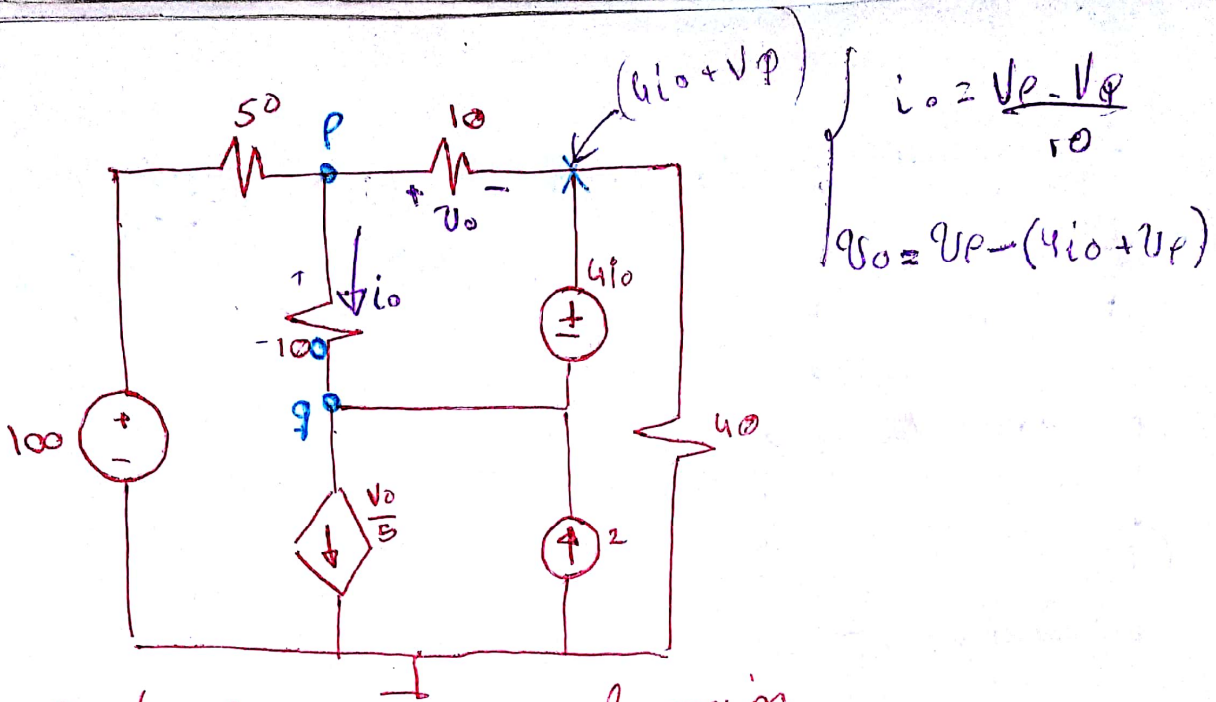 50
P
10
(4io + VP)
io = VP - VP
10
+ Vo -
Vo = VP - (4io + VP)
+
io
-100
4io
+
-
q
100
+
-
Vo
5
2
40